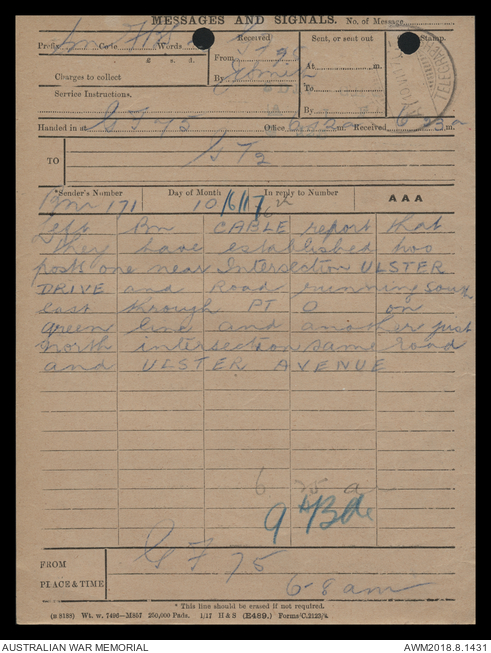 MESSAGES AND SIGNALS. No. of Message
Prefix Sm Code Words
Received
From GT 98
By
Sent, or sent out
At m.
To
By
Stamp.
£ s. d.
Charges to collect
Service Instructions.
Handed in at GF 75 Office m. Received 6-23 m.
TO GT2
*Sender's Number Day of Month In reply to Number AAA
171 10/6/17
Left Bn CABLE report that
they have established two
posts one near Intersection ULSTER
DRIVE and Road running South
East through PT O on
green line and another just
North intersection same road
and ULSTER AVENUE
6 25 a
9th Bde
FROM GF 75
PLACE & TIME 6-8 am
* This line should be erased if not required.
(B 8188) Wt. w. 7496—M857 250,000 Pads. 1/17 H & S (E489.) Forms/C.2123/4.
AUSTRALIAN WAR MEMORIAL AWM2018.8.1431